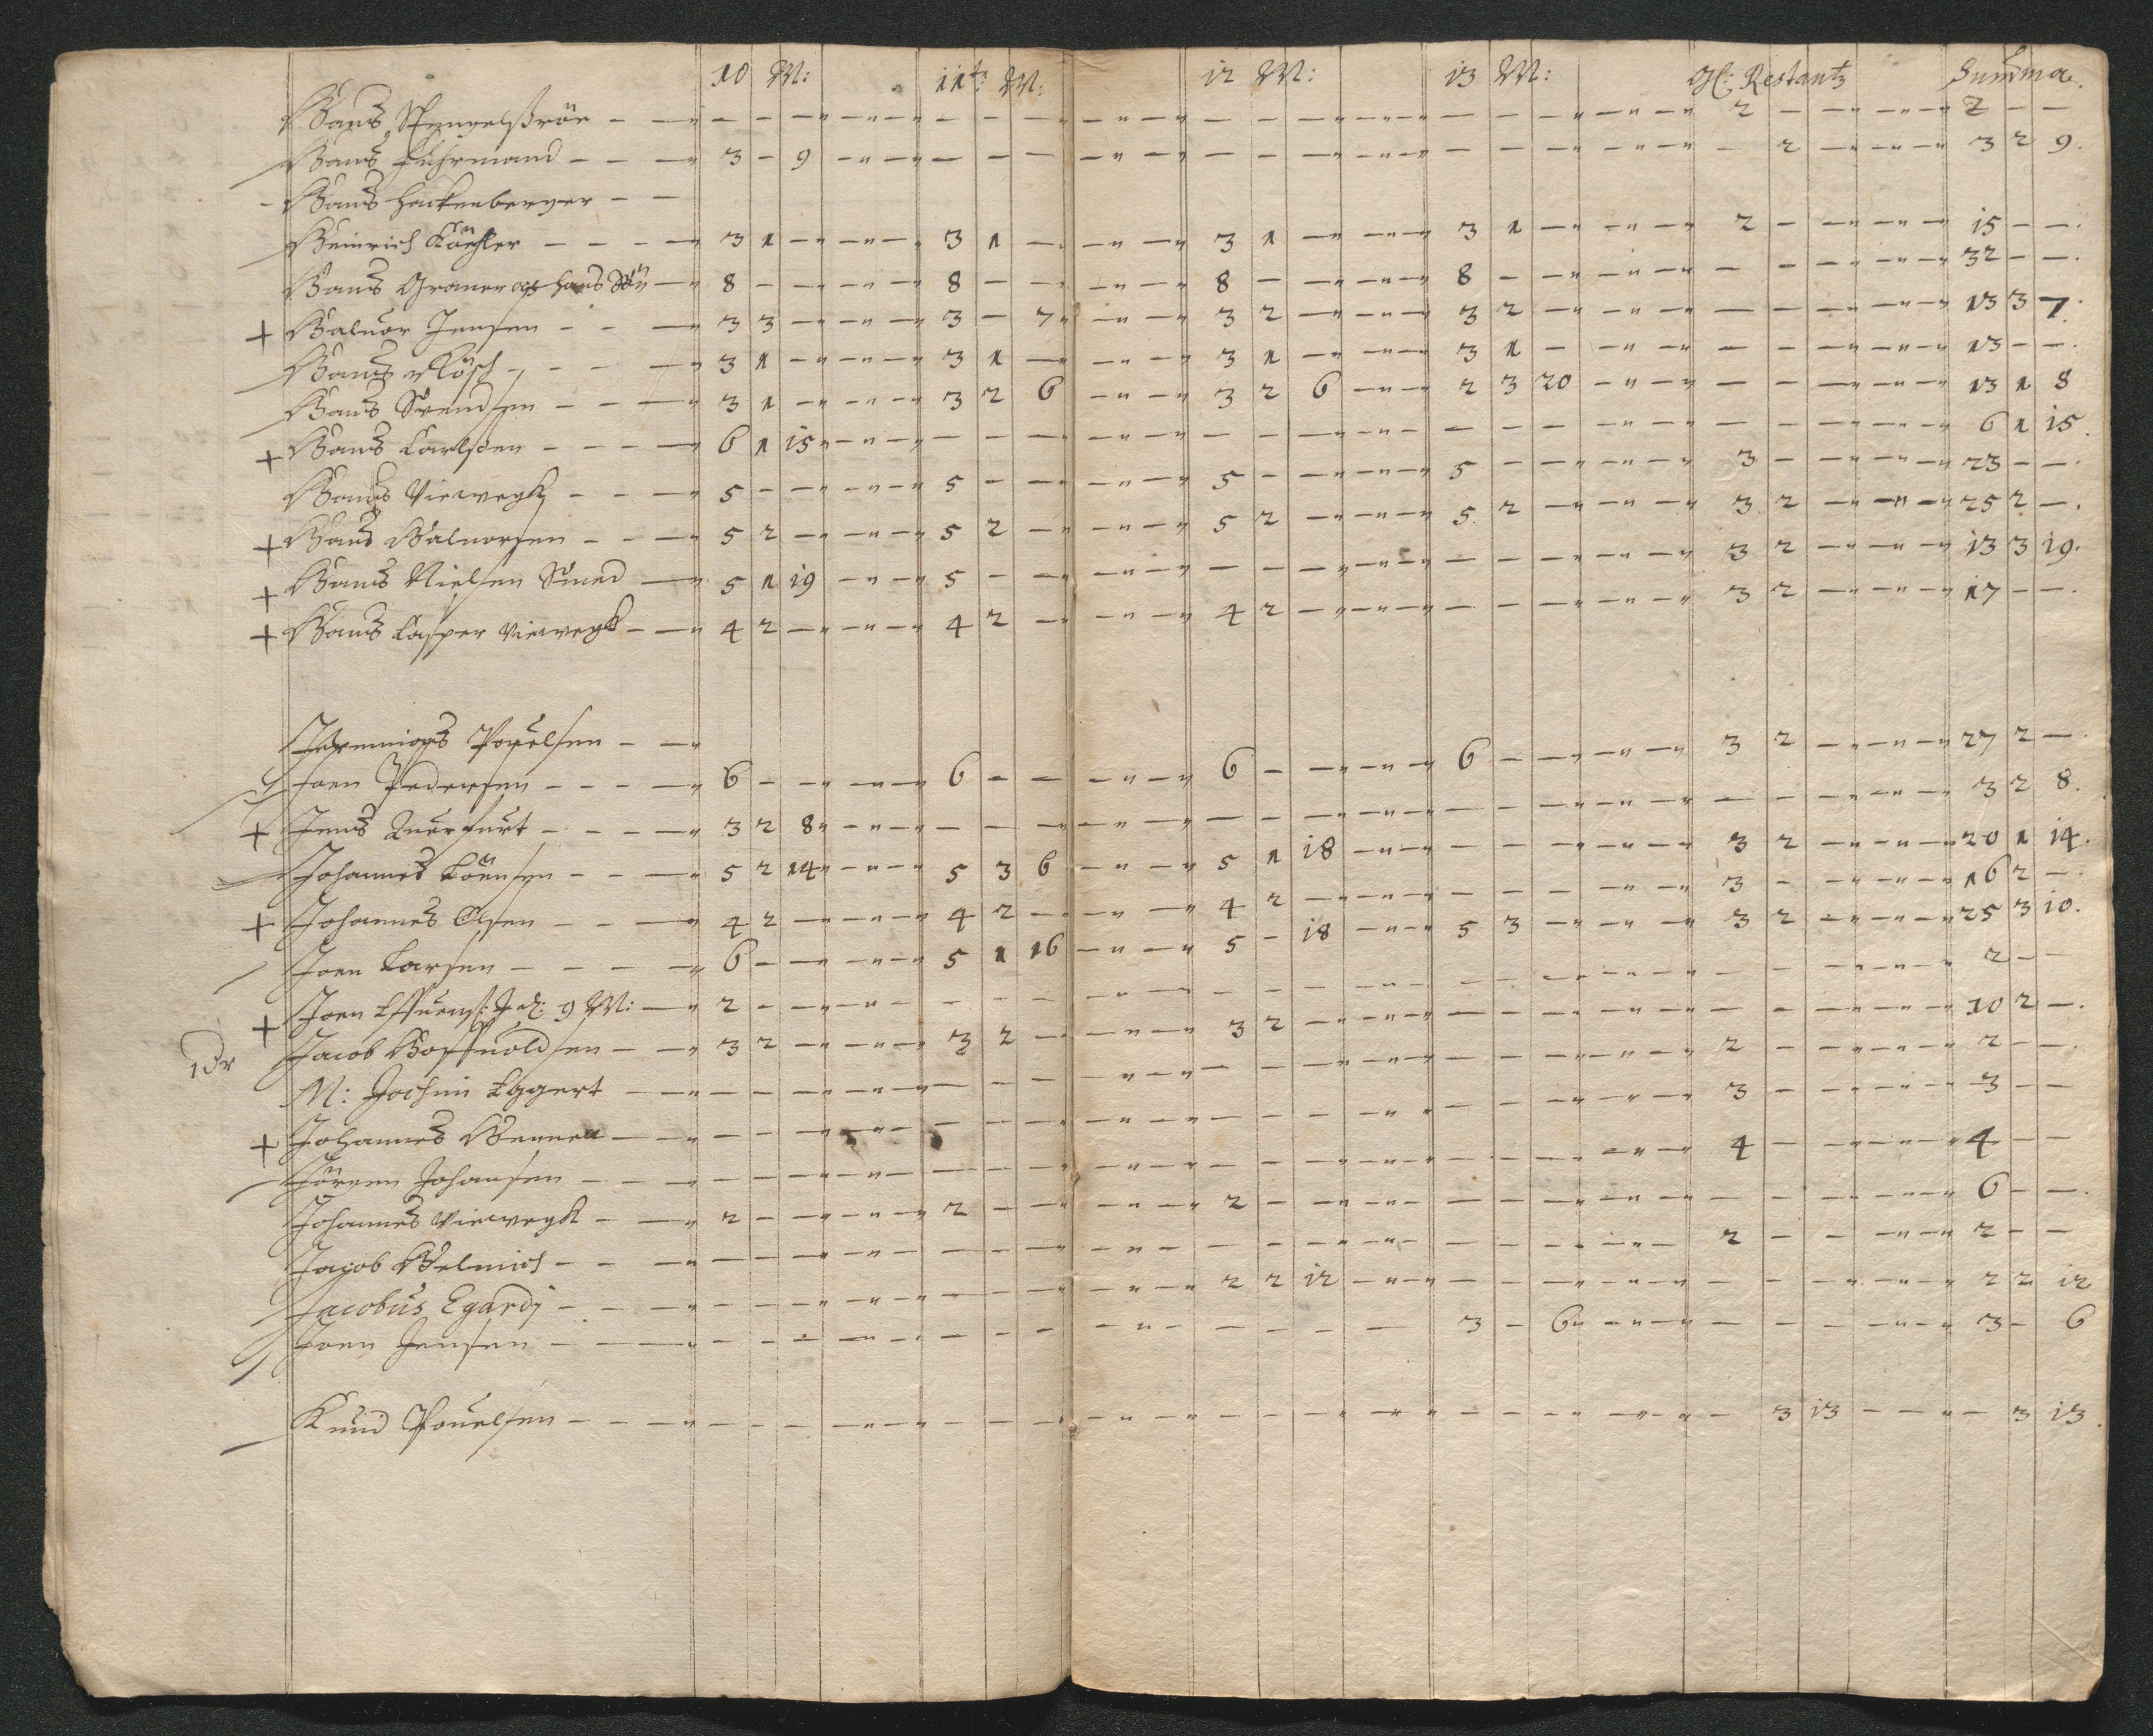 10 M: 11te M: 12 M: 13 M: Gl: Restantz Summa.
Hans Stengelßröe - - - 2 - - 2 - -
Hans Fuhrmand - - - 3 - 9 - - - 2 - 3 2 9.
Hans Hackenberger - -
Heinrich Köhler - - - 3 1 - 3 1 - 3 1 - 3 1 - 2 - - 15 - -
Hans Graner og hans Søn - 8 - - 8 - - 8 - - 8 - - - - 32 - -
+ Haluor Jensen - - - 3 3 - 3 - 7 3 2 - 3 2 - - - 13 3 7.
Hans Rösch - - - 3 1 - 3 1 - 3 1 - 3 1 - - - 13 - -
Hans Svendsen - - - 3 1 - 3 2 6 3 2 6 2 3 20 - - 13 1 8
+ Hans Carlsen - - - 6 1 15 - - - - - 6 1 15.
Hans Viewegk - - - 5 - - 5 - - 5 - - 5 - - 3 - - 23 - -
+ Hans Haluorsen - - - 5 2 - 5 2 - 5 2 - 5 2 - 3 2 - 25 2 -
+ Hans Nielsen Smed - 5 1 19 5 - - - - - 3 2 - 13 3 19.
+ Hans Casper Viewegk - 4 2 - 4 2 - 4 2 - - - 3 2 - 17 - -
Jeremias Pouelsen - -
Joen Pedersen - - - 6 - - 6 - - 6 - - 6 - - 3 2 - 27 2 -
+ Jens Querfurt - - - 3 2 8 - - - - - 3 2 8.
Johannes Löensen - - - 5 2 14 5 3 6 5 1 18 - - 3 2 - 20 1 14.
+ Johannes Olsen - - - 4 2 - 4 2 - 4 2 - - - 3 - - 16 2 -
Joen Larsen - - - 6 - - 5 1 16 5 - 18 5 3 - 3 2 - 25 3 10.
+ Joen 9 M: - 2 - - - - - - 2 - -
Jacob - - 3 2 - 3 2 - 3 2 - - - 10 2 -
M: Jochim Eggert - - - - - 2 - - 2 - -
+ Johannes - - - - - 3 - - 3 - -
Jörgen Johansen - - - - - 4 - - 4 - -
Johannes Viewegk - - 2 - - 2 - - 2 - - - - 6 - -
Jacob Helmich - - - - - 2 - - 2 - -
Jacobus Egardj - - - - 2 2 12 - - 2 2 12
Joen Jensen - - - - - 3 - 6 - - 3 - 6
Knud Pouelsen - - - - - - 3 13 - 3 13.